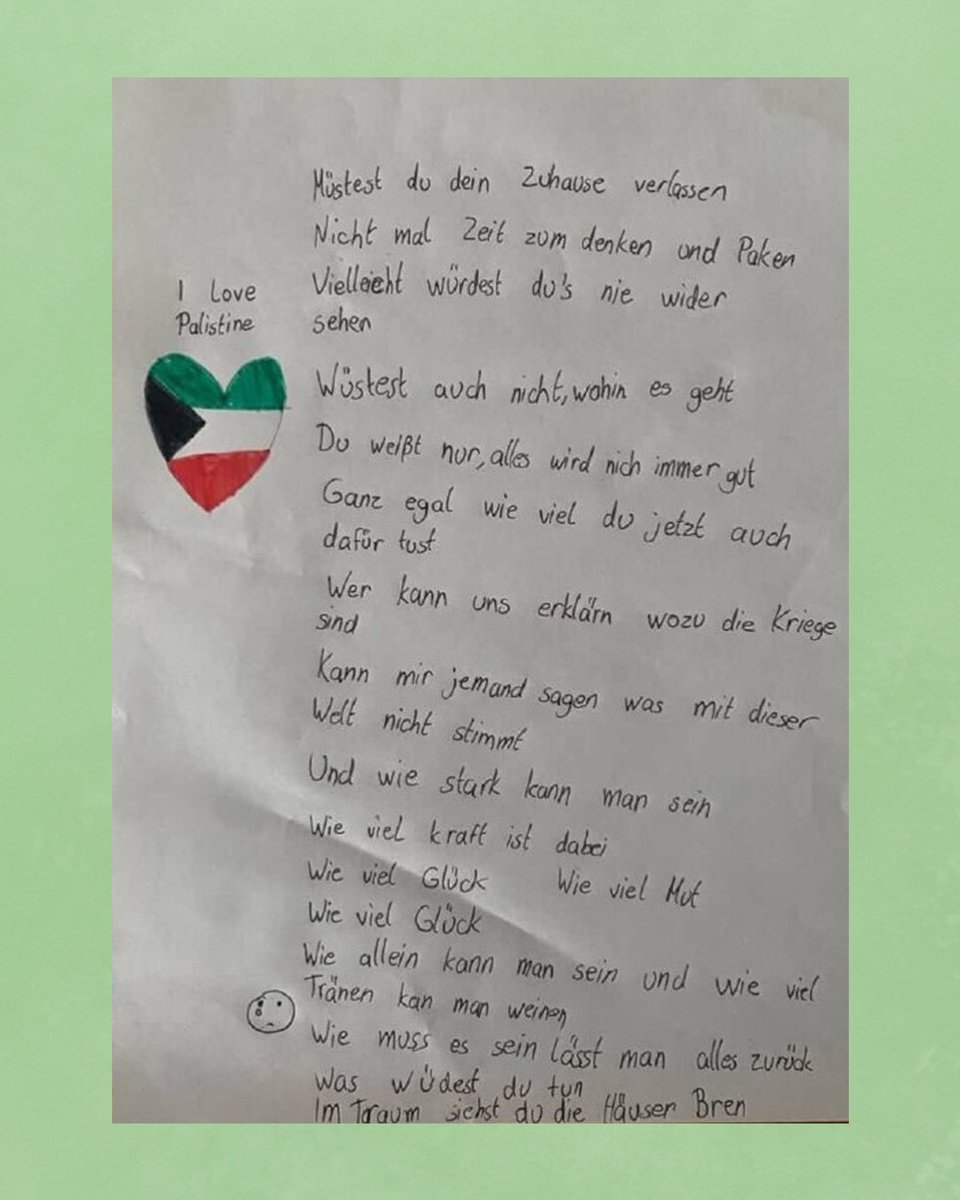 Müstest du dein Zuhause verlassen
Nicht mal Zeit zum denken und Paken
Vielleicht würdest du's nie wider
sehen
I Love
Palistine
Wüstest auch nicht, wohin es geht
Du weißt nur, alles wird nich immer gut
Ganz egal wie viel du jetzt auch
dafür tust
Wer kann uns erklärn wozu die Kriege
sind
Kann mir jemand sagen was mit dieser
Welt nicht stimmt
Und wie stark kann man sein
Wie viel kraft ist dabei
Wie viel Glück Wie viel Mut
Wie viel Glück
Wie allein kann man sein und wie viel
Tränen kan man weinen
Wie muss es sein lässt man alles zurück
was wüdest du tun
Im Traum siehst du die Häuser Bren